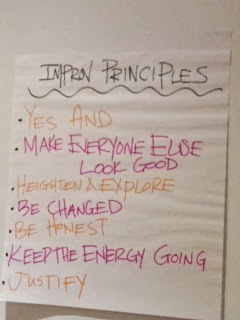 IMPROV PRINCIPLES
• YES AND
• MAKE EVERYONE ELSE
LOOK GOOD
• HEIGHTEN & EXPLORE
• BE CHANGED
• BE HONEST
• KEEP THE ENERGY GOING
• JUSTIFY